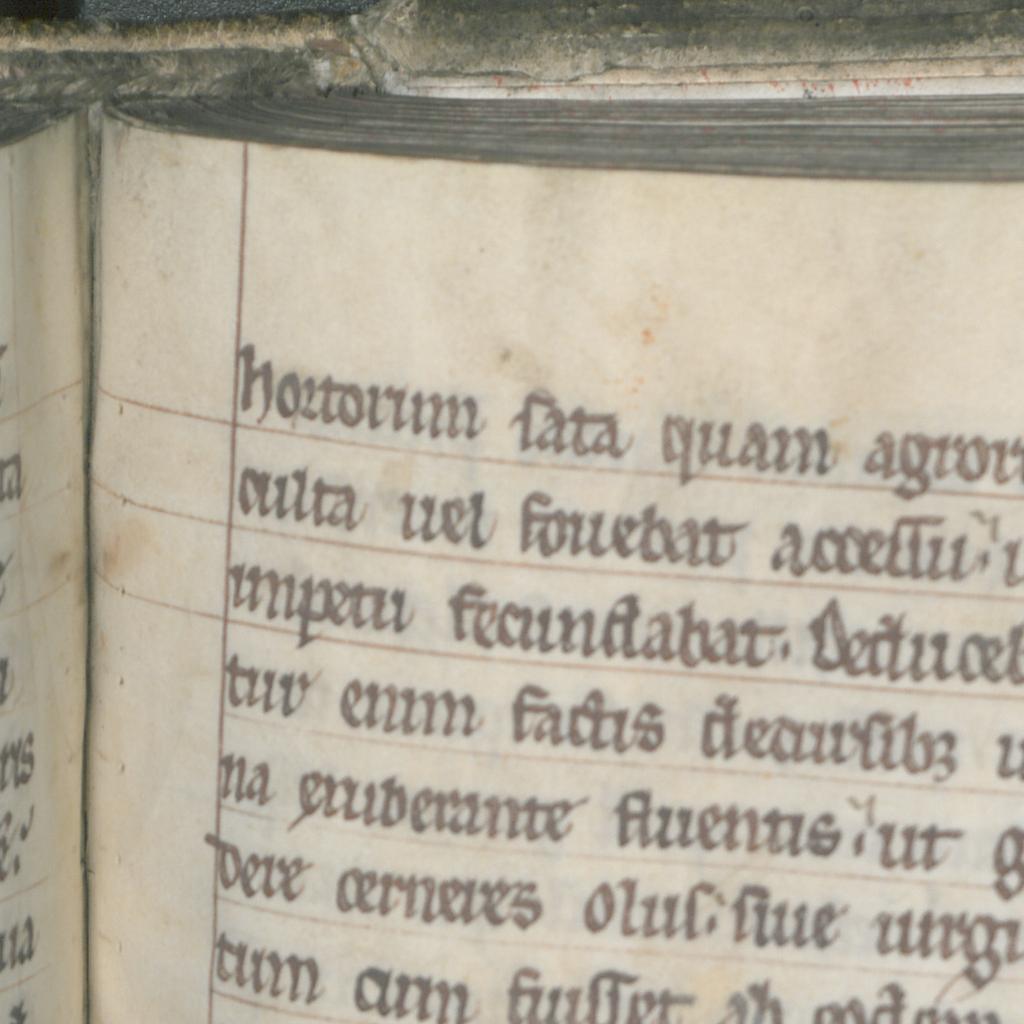 hortorum sata quam agror
culta uel fouebat accessu. u
impetu fecundabat. Deduceb
tur enim factis decursibꝫ u
na exuberante fluentis. ut g
dere cerneres olus. siue uirgu
tum cum fuisset ab eodem